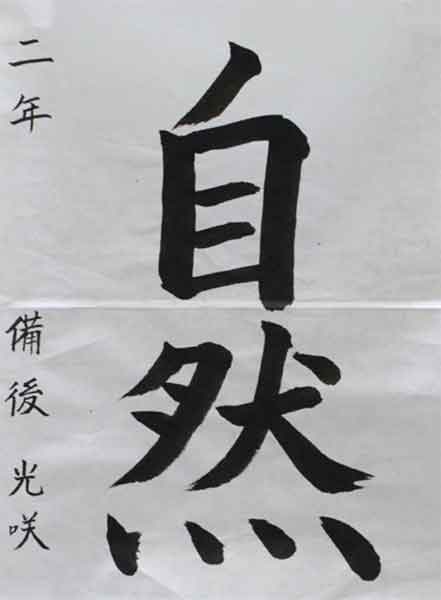 自然
二年
備後 光咲